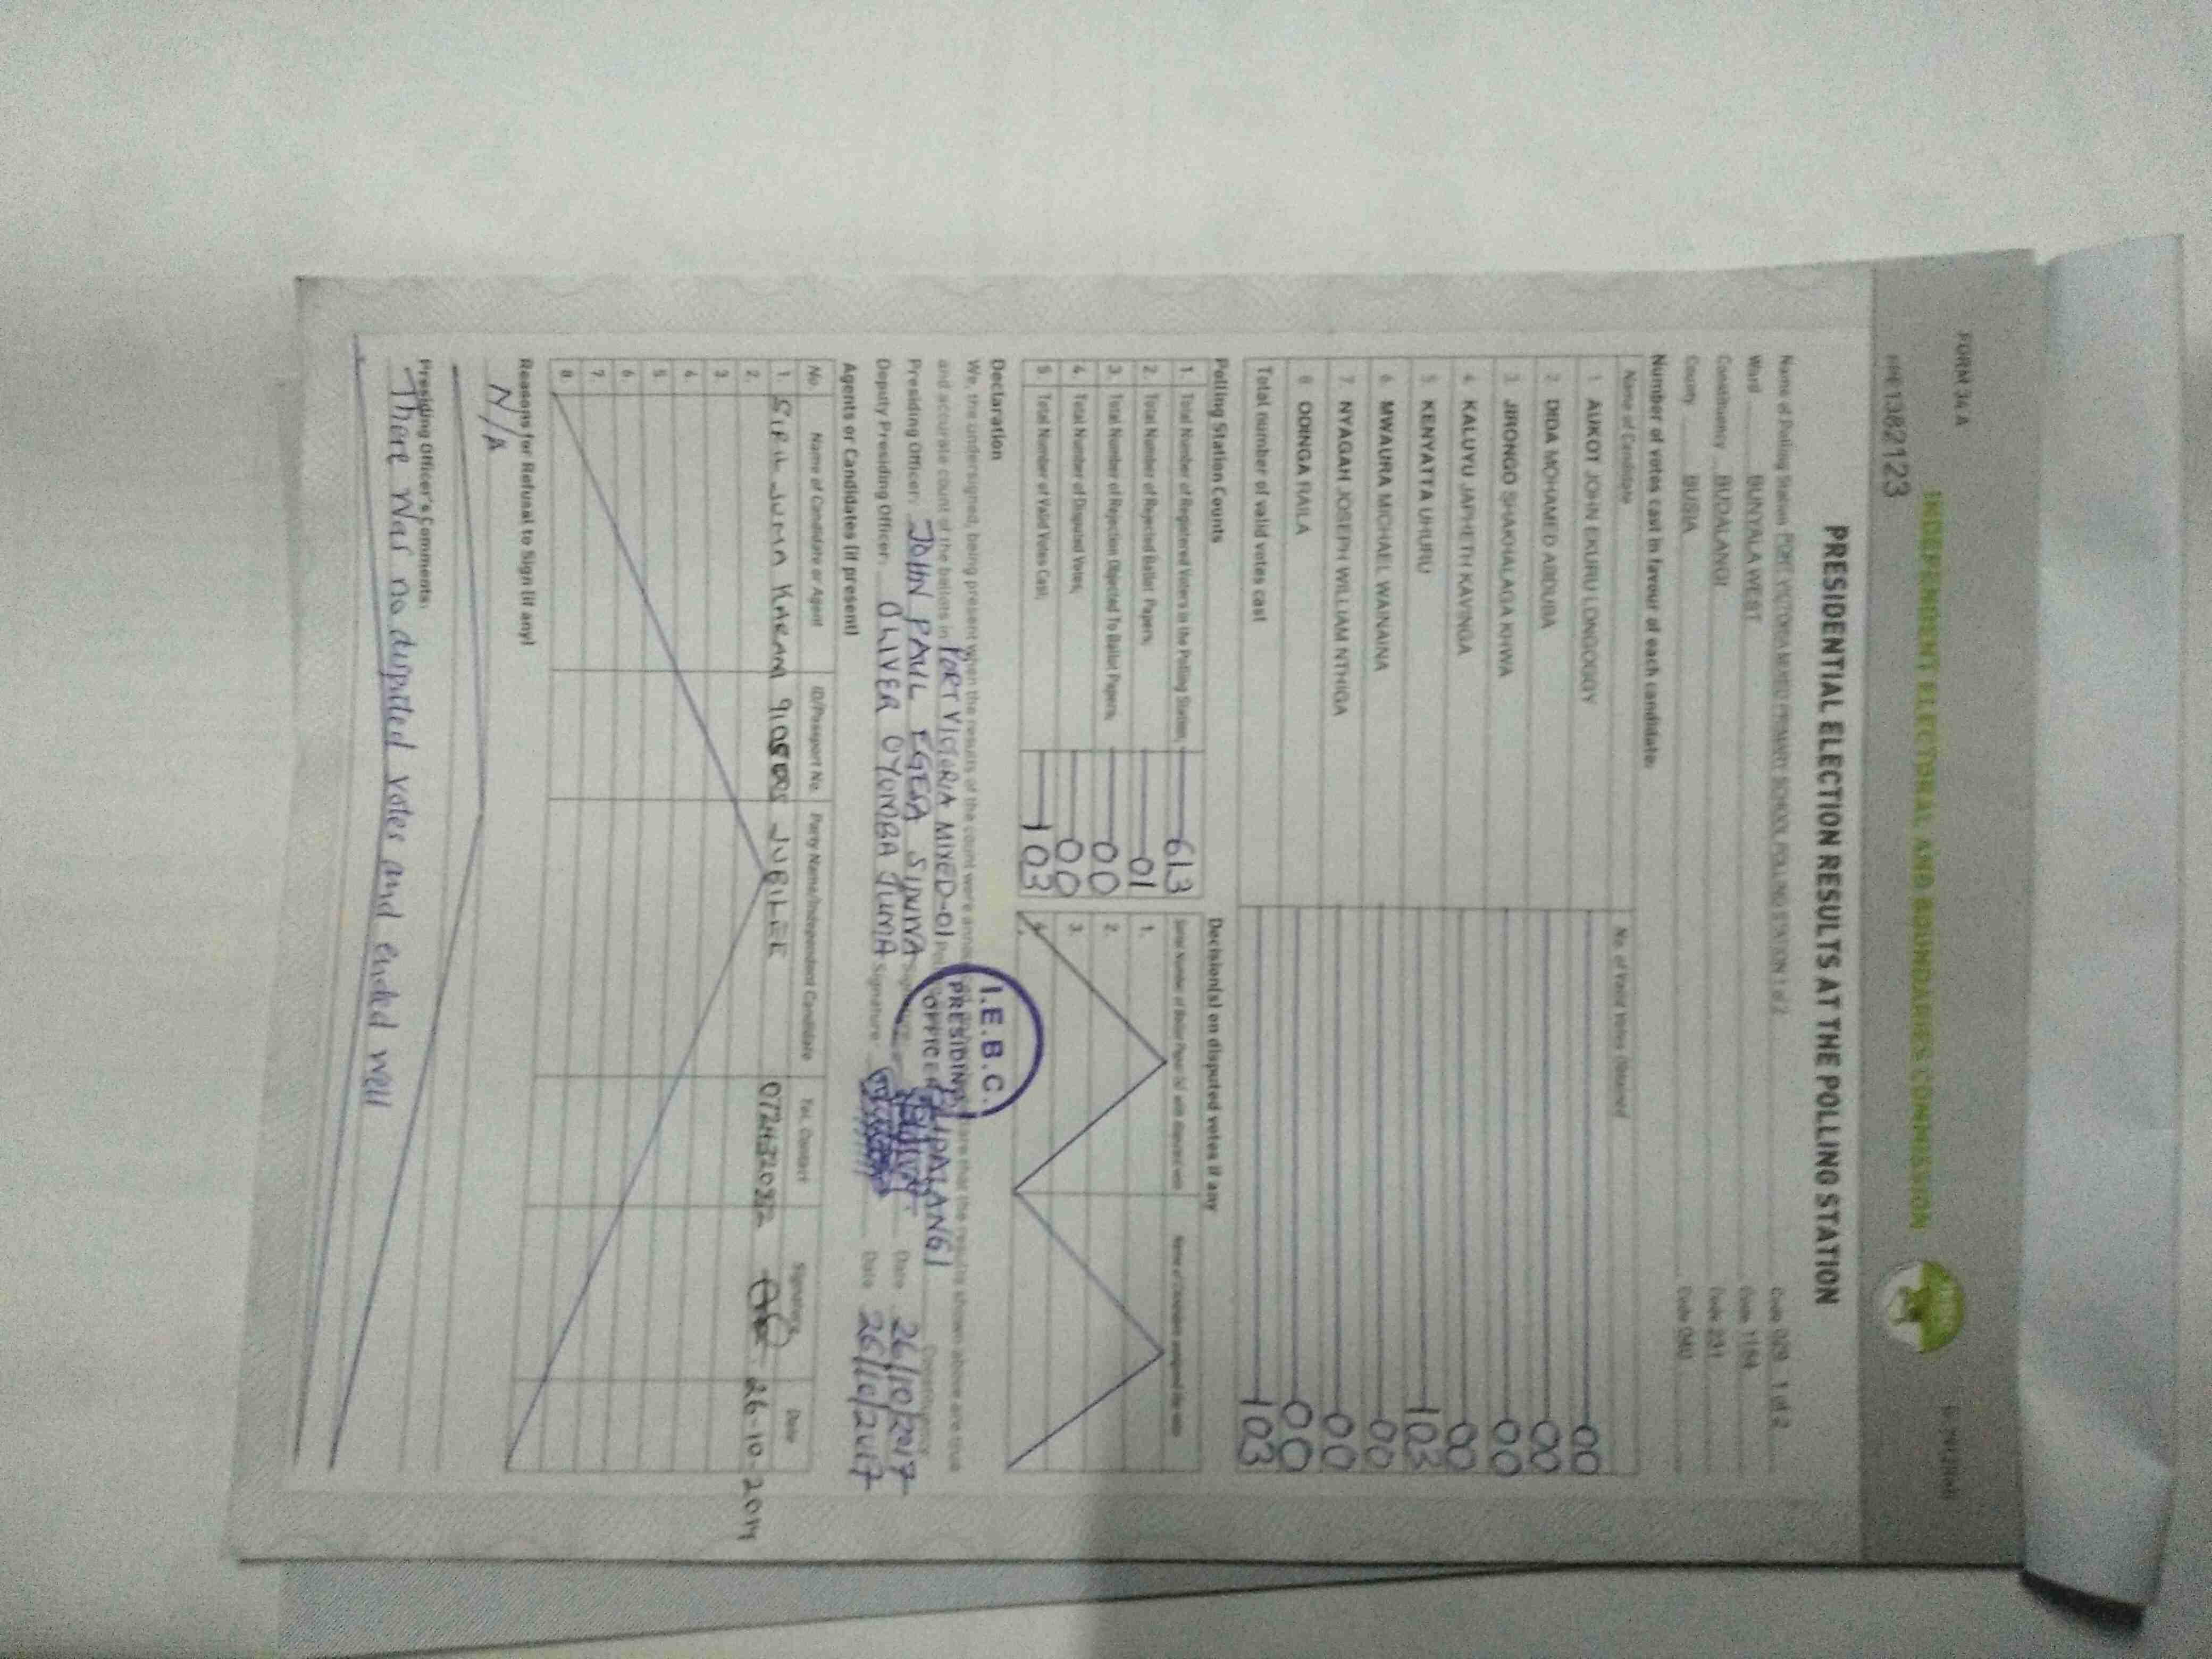 FORM 34 A
INDEPENDENT ELECTORAL AND BOUNDARIES COMMISSION
PRE1382123
PRESIDENTIAL ELECTION RESULTS AT THE POLLING STATION
Name of Polling Station PORT VICTORIA MIXED PRIMARY SCHOOL POLLING STATION 1 of 2 Code 029 1 of 2
Ward BUNYALA WEST Code 1154
Constituency BUDALANGI Code 231
County BUSIA Code 040
Number of votes cast in favour of each candidate:
Name of Candidate No. of Valid votes Obtained
1. AUKOT JOHN EKURU LONGOGGY 00
2. DIDA MOHAMED ABDUBA 00
3. JIRONGO SHAKHALAGA KHWA 00
4. KALUYU JAPHETH KAVINGA 00
5. KENYATTA UHURU 103
6. MWAURA MICHAEL WAINAINA 00
7. NYAGAH JOSEPH WILLIAM NTHIGA 00
8. ODINGA RAILA 00
Total number of valid votes cast 103
Polling Station Counts
1. Total Number of Registered Voters in the Polling Station 613
2. Total Number of Rejected Ballot Papers 01
3. Total Number of Rejection Objected To Ballot Papers 00
4. Total Number of Disputed Votes 00
5. Total Number of Valid Votes Cast 103
Decision(s) on disputed votes if any
1.
2.
3.
Declaration
We, the undersigned, being present when the results of the count were are that the results shown above are true
and accurate count of the ballots in PORT VICTORIA MIXED-01 BUDALANGI Constituency
Presiding Officer: JOHN PAUL EGESA SINNA Date 26/10/2017
Deputy Presiding Officer: OLIVER OYUMBA JUMA Signature Date 26/10/2017
I.E.B.C.
PRESIDING
OFFICER
Agents or Candidates (if present)
No Name of Candidate or Agent ID/Passport No. Party Name/Independent Candidate Tel. Contact Signature Date
1. JUMA JUBILEE
2.
3.
4.
5.
6.
7.
8.
Reasons for Refusal to Sign (if any)
N/A
Presiding Officer's Comments:
There was no disputed votes and ended well